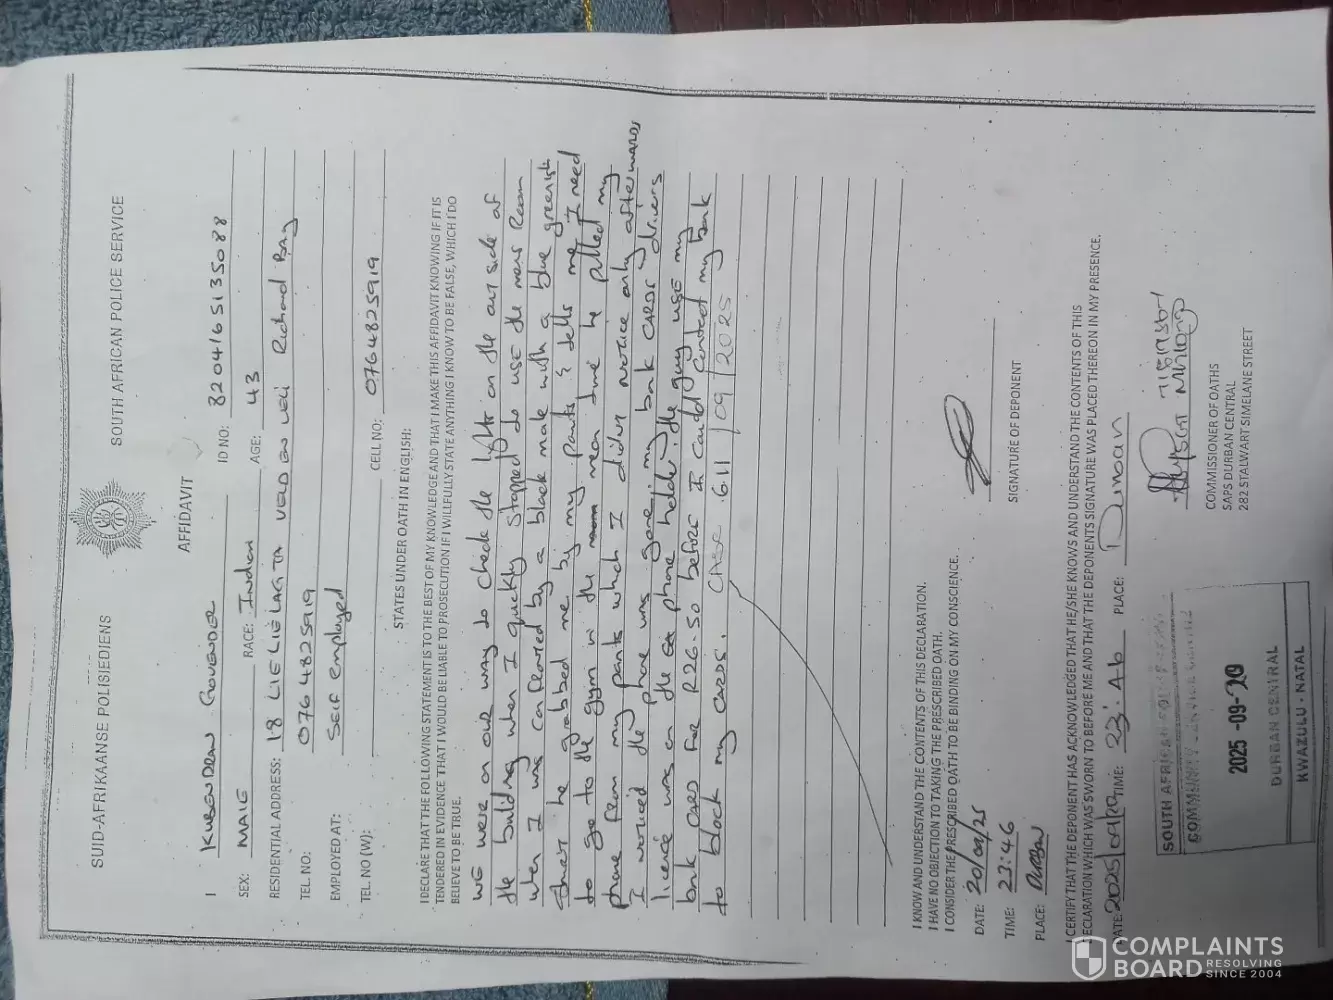 SUID-AFRIKAANSE POLISIEDIENS
SOUTH AFRICAN POLICE SERVICE
AFFIDAVIT
I KUBENDRAN GOVENDER ID NO: 8204165135088
SEX: MALE RACE: Indian AGE: 43
RESIDENTIAL ADDRESS: 18 LIE LIE LAGTA VELD EN VLEI Richard Bay
TEL. NO: 0764825919
EMPLOYED AT: Self employed
TEL. NO (W): CELL NO: 0764825919
STATES UNDER OATH IN ENGLISH:
I DECLARE THAT THE FOLLOWING STATEMENT IS TO THE BEST OF MY KNOWLEDGE AND THAT I MAKE THIS AFFIDAVIT KNOWING IF IT IS
TENDERED IN EVIDENCE THAT I WOULD BE LIABLE TO PROSECUTION IF I WILLFULLY STATE ANYTHING I KNOW TO BE FALSE, WHICH I DO
BELIEVE TO BE TRUE.
WE were on our way to check the lights on the out side of
the building when I quickly stopped to use the mens Room
when I was confronted by a black male with a blue greenish
shirt he grabbed me by my pants & tells me I need
to go to the gym in the mean time he pulled my
phone from my pants which I didnt notice only afterwards
I noticed the phone was gone, my bank CARDS my drivers
licence was on the phone holder. the guy use my
bank CARD for R26-50 before I could contact my bank
to block my CARDS. CASE 611/09/2025
I KNOW AND UNDERSTAND THE CONTENTS OF THIS DECLARATION.
I HAVE NO OBJECTION TO TAKING THE PRESCRIBED OATH.
I CONSIDER THE PRESCRIBED OATH TO BE BINDING ON MY CONSCIENCE.
DATE: 20/09/25
TIME: 23:46
PLACE: DURBAN
SIGNATURE OF DEPONENT
I CERTIFY THAT THE DEPONENT HAS ACKNOWLEDGED THAT HE/SHE KNOWS AND UNDERSTAND THE CONTENTS OF THIS
DECLARATION WHICH WAS SWORN TO BEFORE ME AND THAT THE DEPONENTS SIGNATURE WAS PLACED THEREON IN MY PRESENCE.
DATE: 2025/09/20 TIME: 23:46 PLACE: Durban
COMMISSIONER OF OATHS
SAPS DURBAN CENTRAL
282 STALWART SIMELANE STREET
SOUTH AFRICAN
COMMUNITY SERVICE
2025 -09- 20
DURBAN CENTRAL
KWAZULU - NATAL
COMPLAINTS
BOARD RESOLVING
SINCE 2004